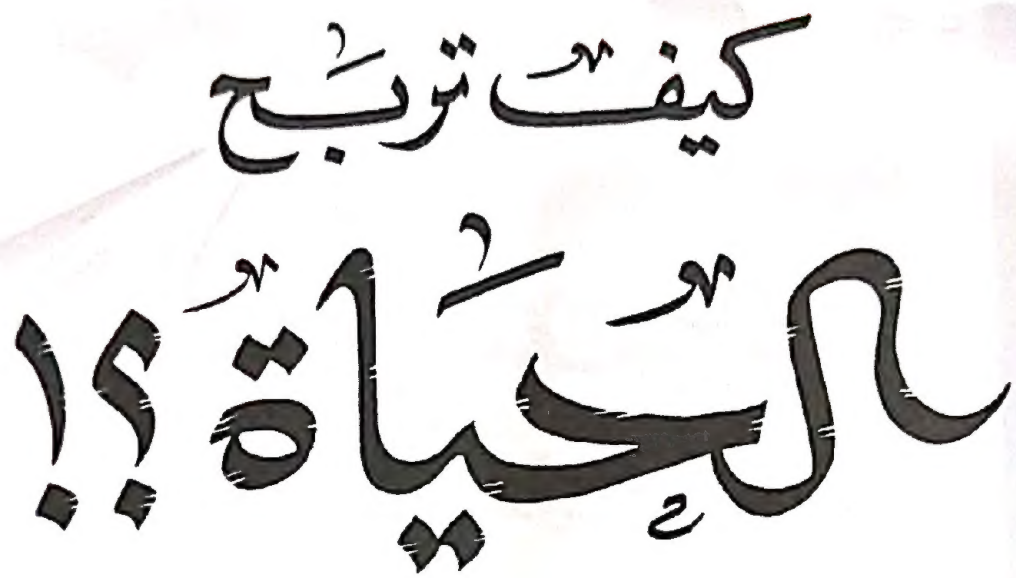 كيف تربح
الحياة ؟!